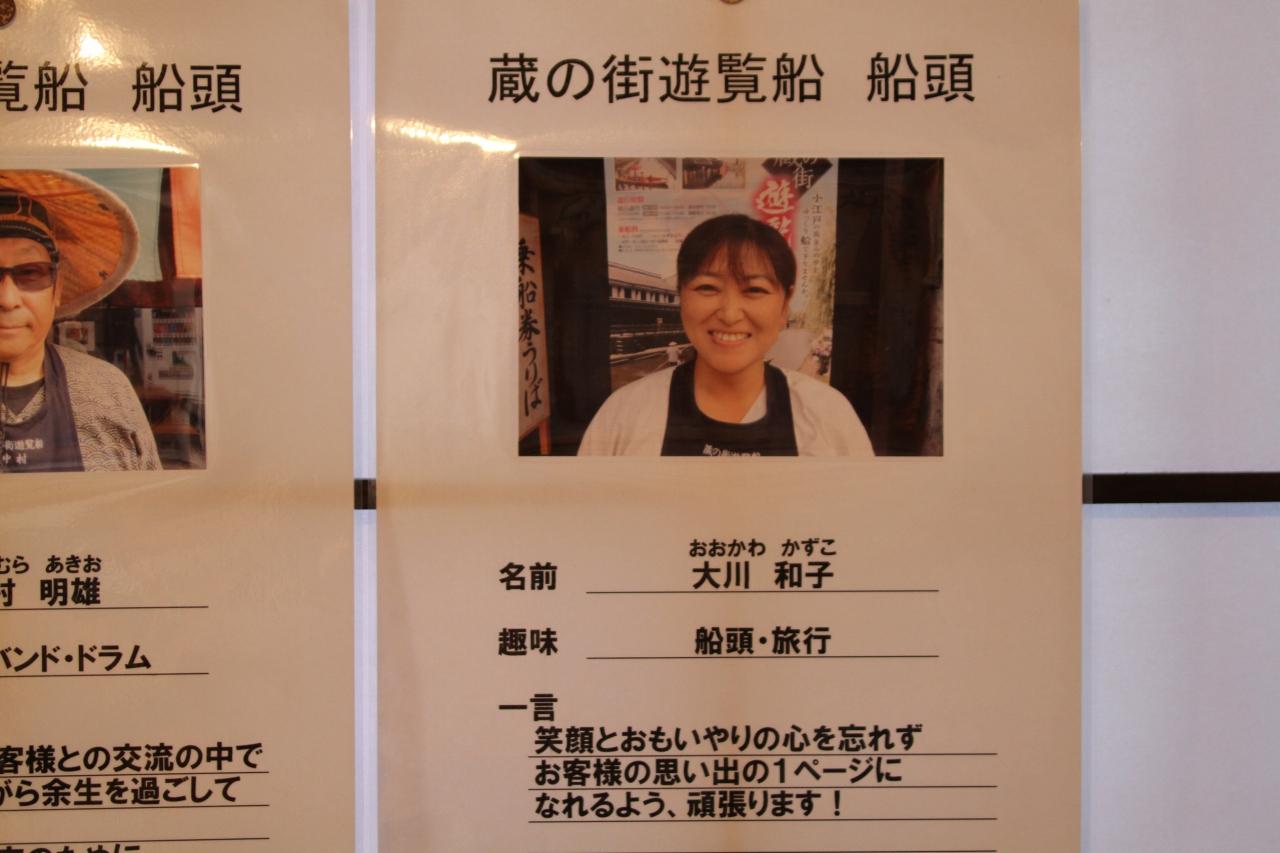 覧船 船頭
街遊覧船
中村
むら あきお
村 明雄
バンド・ドラム
客様との交流の中で
がら余生を過ごして
蔵の街遊覧船 船頭
蔵の街
遊
乗船券うりば
蔵の街遊覧船
おおかわ かずこ
名前 大川 和子
趣味 船頭・旅行
一言
笑顔とおもいやりの心を忘れず
お客様の思い出の1ページに
なれるよう、頑張ります！